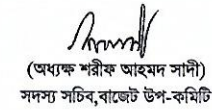 (অধ্যক্ষ শরীফ আহমদ সাদী)
সদস্য সচিব,বাজেট উপ-কমিটি